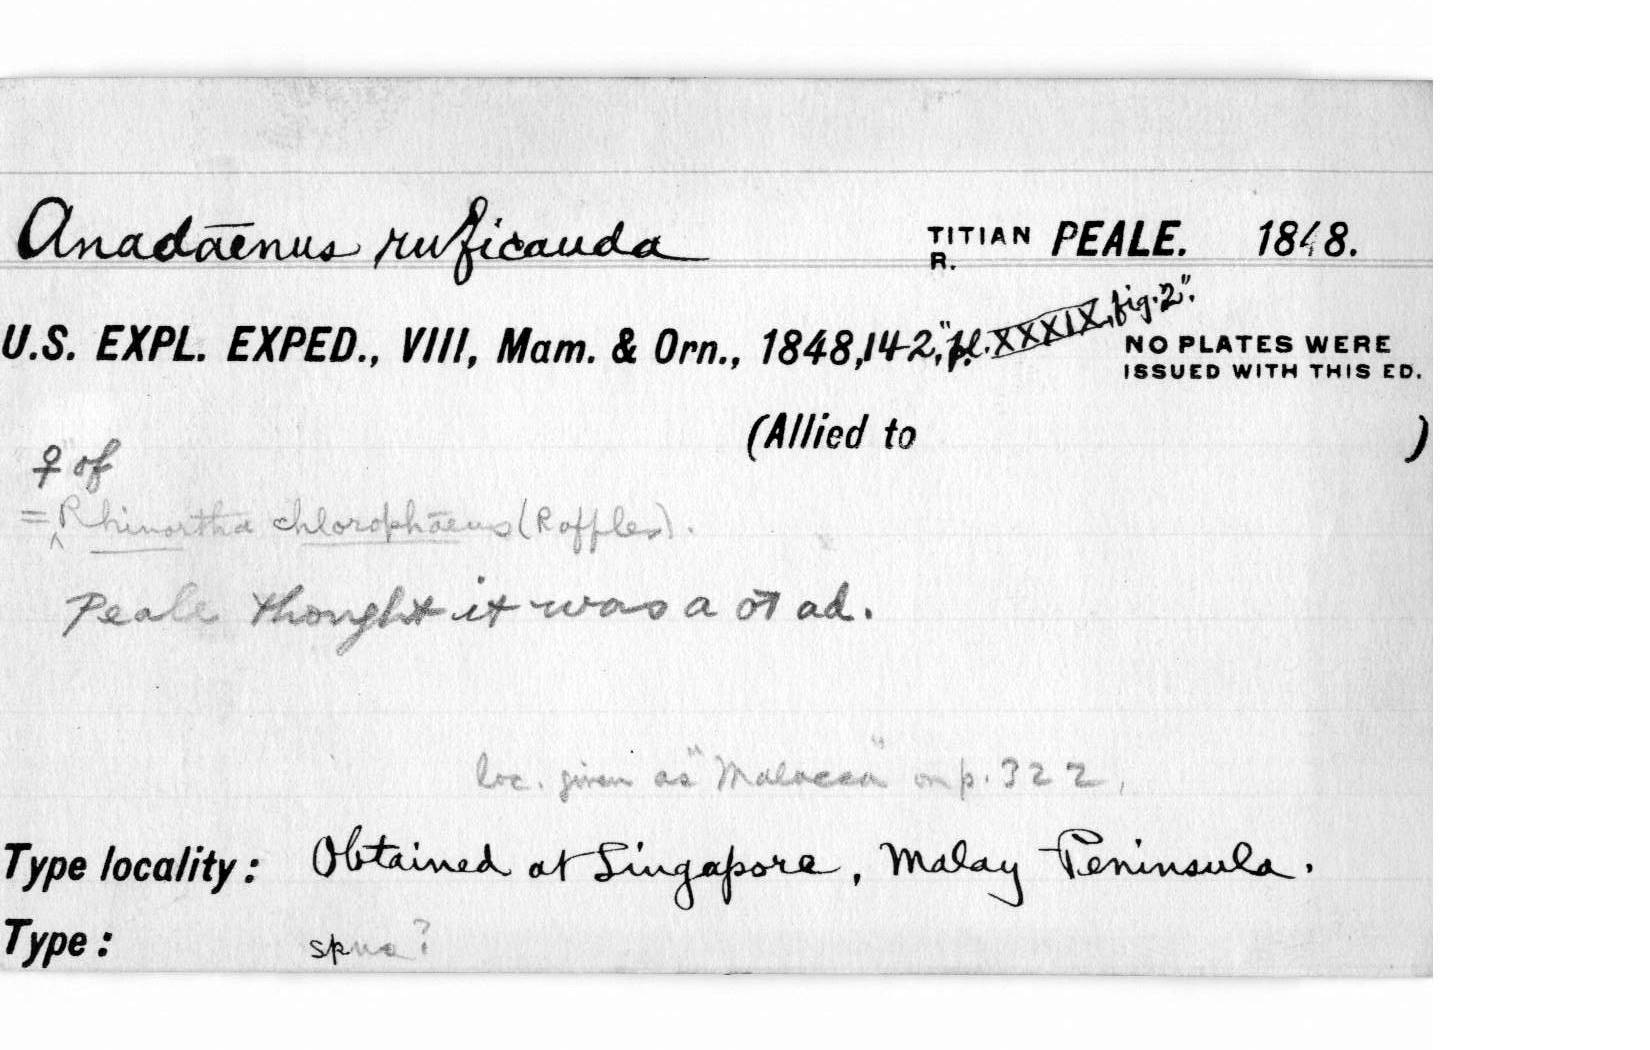 Anadaenus ruficauda TITIAN R. PEALE. 1848.
U.S. EXPL. EXPED., VIII, Mam. & Orn., 1848, 142, "pl. XXXIX, fig. 2".
NO PLATES WERE
ISSUED WITH THIS ED.
(Allied to )
♀ of
= ^ Rhinortha chlorophaeus (Raffles).
Peale thought it was a ♂ ad.
loc. given as "Malacca" on p. 322,
Type locality: Obtained at Singapore, Malay Peninsula.
Type: